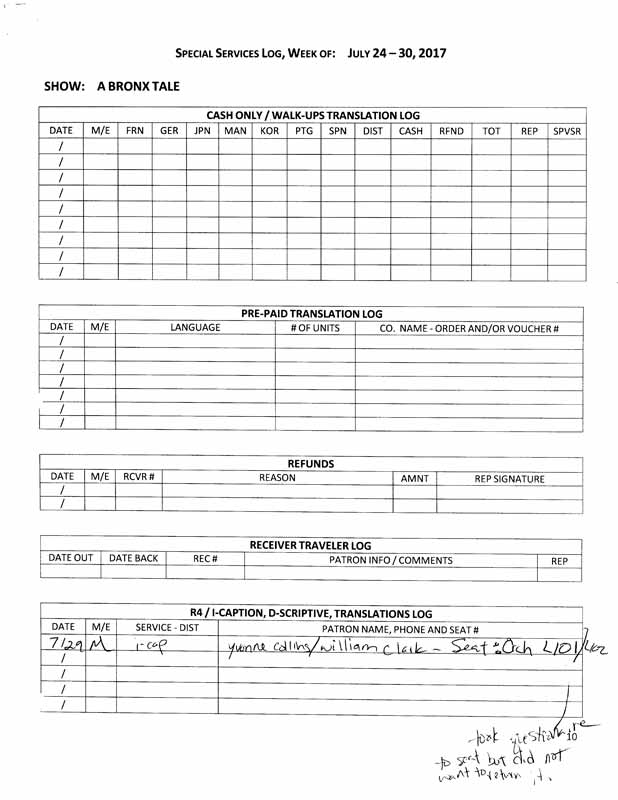 SPECIAL SERVICES LOG, WEEK OF: JULY 24 – 30, 2017
SHOW: A BRONX TALE
CASH ONLY / WALK-UPS TRANSLATION LOG
DATE M/E FRN GER JPN MAN KOR PTG SPN DIST CASH RFND TOT REP SPVSR
/
/
/
/
/
/
/
/
/
PRE-PAID TRANSLATION LOG
DATE M/E LANGUAGE # OF UNITS CO. NAME - ORDER AND/OR VOUCHER #
/
/
/
/
/
/
/
REFUNDS
DATE M/E RCVR # REASON AMNT REP SIGNATURE
/
/
RECEIVER TRAVELER LOG
DATE OUT DATE BACK REC # PATRON INFO / COMMENTS REP
R4 / I-CAPTION, D-SCRIPTIVE, TRANSLATIONS LOG
DATE M/E SERVICE - DIST PATRON NAME, PHONE AND SEAT #
7/29 M i-cap yvonne collins/william Clark - Seat: Orch L101/102
/
/
/
/
took questionnaire
to seat but did not
want to return it.